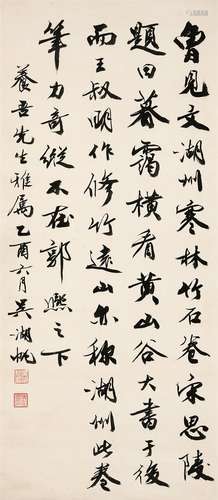 曾见文湖州寒林竹石卷宋思陵
题曰暮霭横看黄山谷大书于後
而王叔明作修竹遠山亦称湖州此卷
筆力奇縱不在郭熙之下
養吾先生雅属乙酉六月吴湖帆